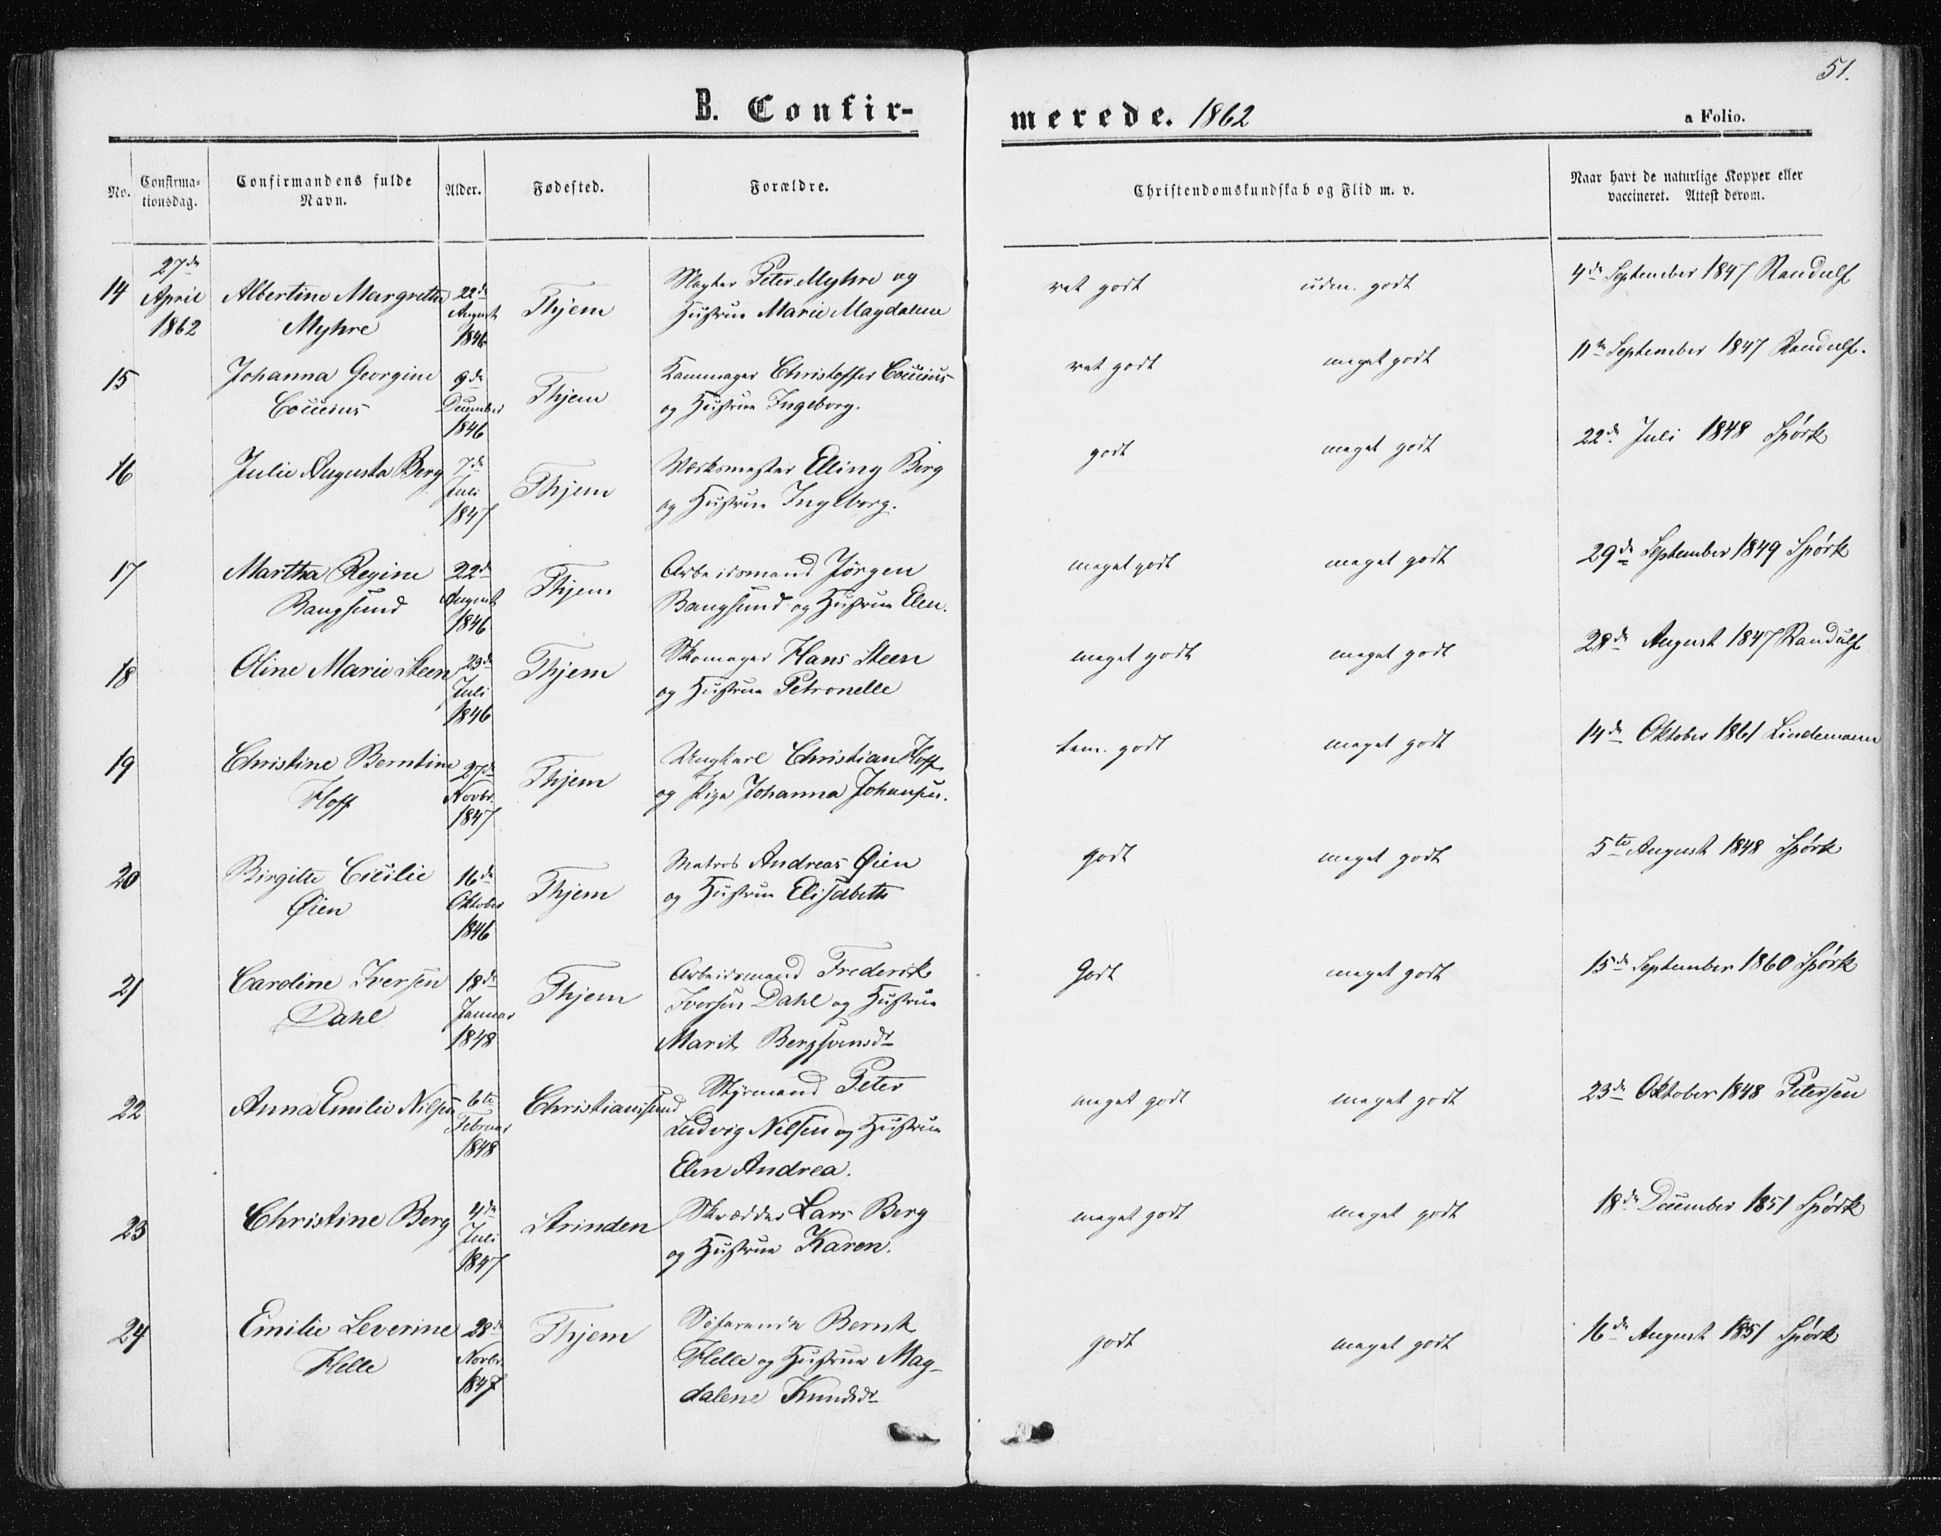 51.
B. Confir-
merede. 1862
a Folio.
No.
Confirma-
tionsdag.
Confirmandens fulde
Navn.
Alder.
Fødested.
Forældre.
Christendomskundskab og Flid m. v.
Naar havt de naturlige Kopper eller
vaccineret. Attest derom.
14
27de
April
1862
Albertine Margrethe
Myhre
22de
August
1846
Thjem
Peter Myhre og
Hustrue Marie Magdalene
ret godt
udm. godt
4de September 1847 Randulf
15
Johanna Georgine
Coucius
9de
December
1846
Thjem
Kammager Christoffer Coucius
og Hustrue Ingeborg.
ret godt
meget godt
11te September 1847 Randulf.
16
Julie Augusta Berg
7de
Juli
1847
Thjem
Værksmester Elling Berg
og Hustrue Ingeborg.
godt
meget godt
22de Juli 1848 Spørk
17
Martha Regine
Bangsund
22de
August
1846
Thjem
Arbeidsmand Jørgen
Bangsund og Hustrue Elen.
meget godt
meget godt
29de September 1849 Spørk
18
Oline Marie Steen
23de
Juli
1846
Thjem
Skomager Hans Steen
og Hustrue Petronelle
meget godt
meget godt
28de August 1847 Randulf
19
Christine Berntine
Hoff
27de
Novbr.
1847
Thjem
Ungkarl Christian Hoff
og Pige Johanna Johansen.
tem. godt
meget godt
14de Oktober 1861 Lindemann
20
Birgitte Cicilie
Øien
16de
Oktober
1846
Thjem
Matros Andreas Øien
og Hustrue Elisabeth
godt
meget godt
5te August 1848 Spørk
21
Caroline Iversen
Dahl
18de
Januar
1848
Thjem
Arbeidsmand Frederik
Iversen Dahl og Hustrue
Marit Bergsvensdt
Godt
meget godt
15de September 1860 Spørk
22
Anna Emilie Nilsen
6te
Februar
1848
Christiansund
Styrmand Peter
Ludvig Nilsen og Hustrue
Elen Andrea.
meget godt
meget godt
23de Oktober 1848 Petersen
23
Christine Berg
4de
Juli
1847
Strinden
Skrædder Lars Berg
og Hustrue Karen.
meget godt
meget godt
18de December 1851 Spørk
24
Emilie Leverine
Helle
28de
Novbr.
1847
Thjem
Søfarende Bernt
Helle og Hustrue Mag-
dalene Knudsdt
godt
meget godt
16de August 1851 Spørk